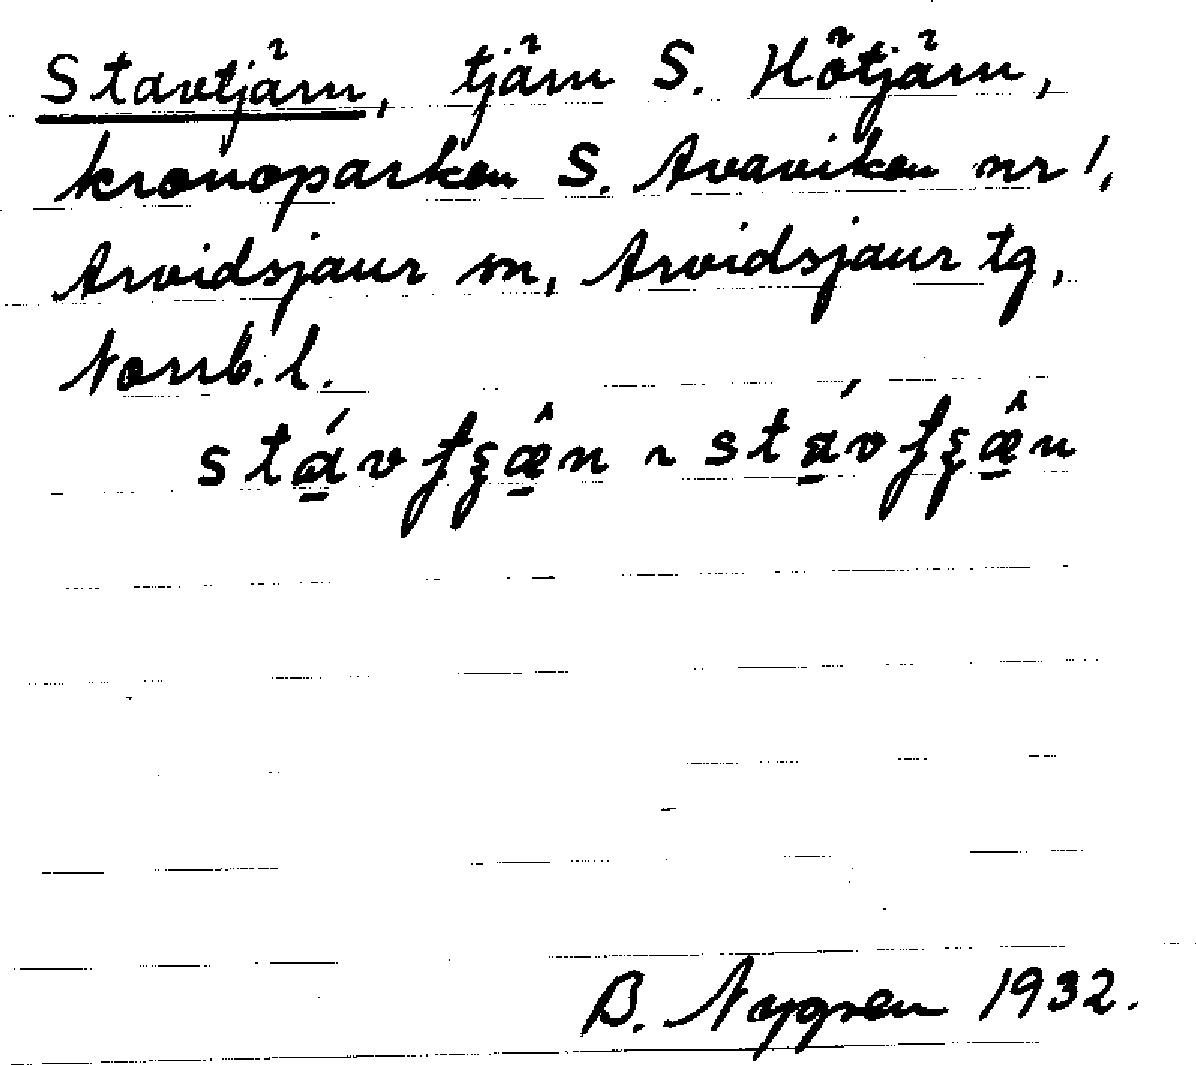 Stavtjärn, tjärn S. Hötjärn,
kronoparken S. Avaviken nr 1,
Arvidsjaur sn, Arvidsjaur tg,
Norrb. l.
B. Nygren 1932.